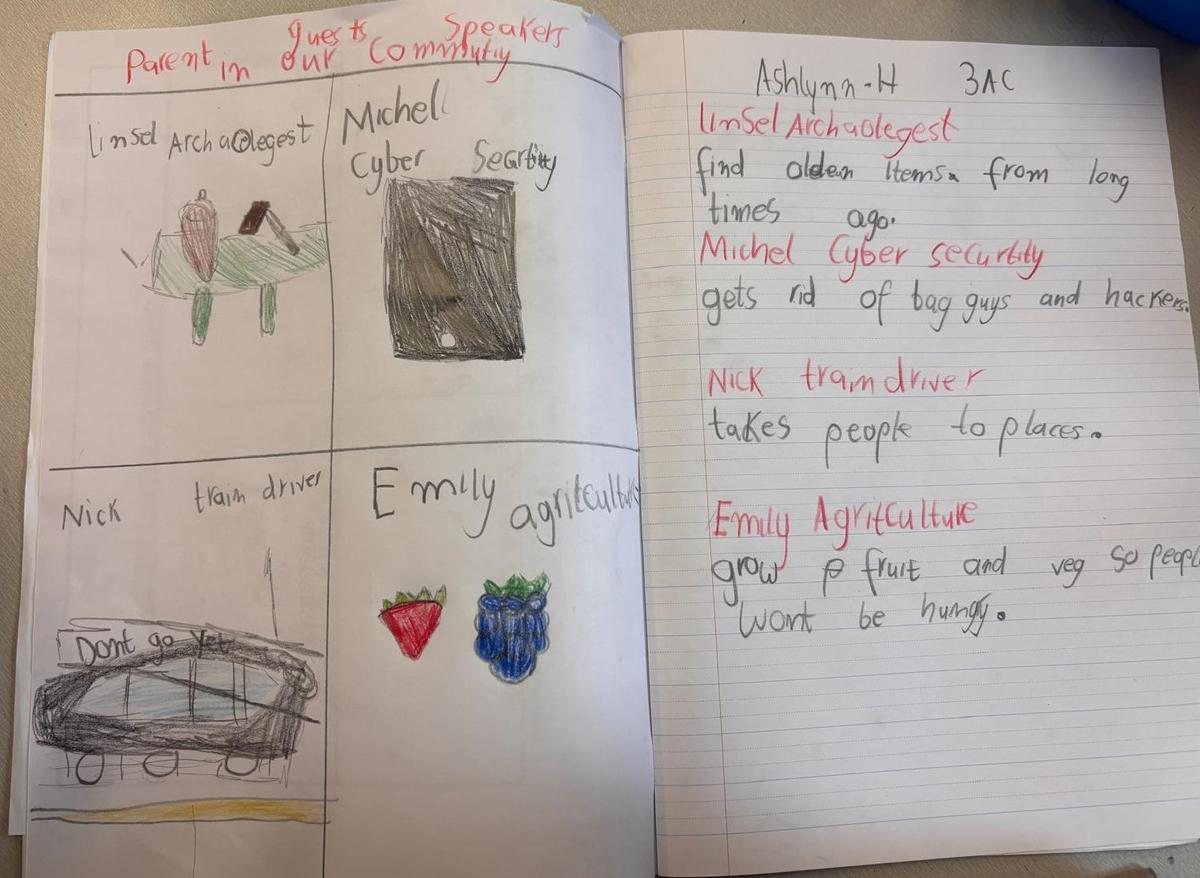 Parent guests Speakers
in our Commutiy
linsel Archaologest
Michell
Cyber Searbitty
Nick train driver
Dont go Yet
Emily
agritculture
Ashlynn-H 3AC
linsel Archaolegest
find olden items from long
times ago.
Michel Cyber securtity
gets rid of bag guys and hackers.
Nick train driver
takes people to places.
Emily Agritculture
grow p fruit and veg so peopl
wont be hungy.